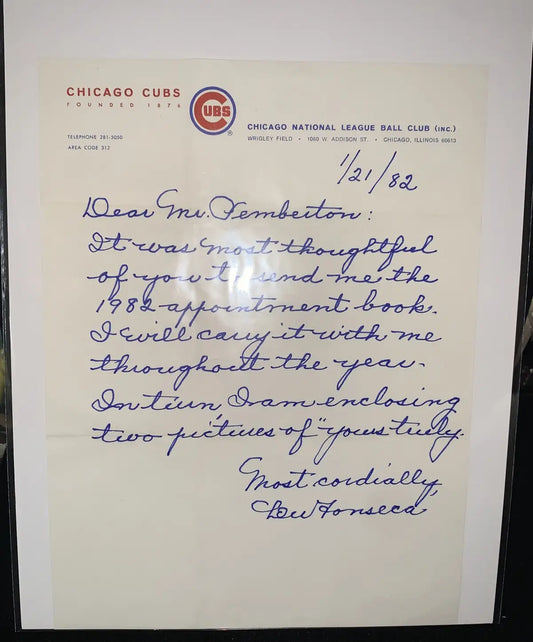 CHICAGO CUBS
FOUNDED 1876
CUBS
®
TELEPHONE 281-5050
AREA CODE 312
CHICAGO NATIONAL LEAGUE BALL CLUB (INC.)
WRIGLEY FIELD • 1060 W. ADDISON ST. • CHICAGO, ILLINOIS 60613
1/21/82
Dear Mr. Pemberton:
It was most thoughtful
of you to send me the
1982 appointment book.
I will carry it with me
throughout the year.
In turn, I am enclosing
two pictures of "yours truly.
Most cordially,
Lew Fonseca